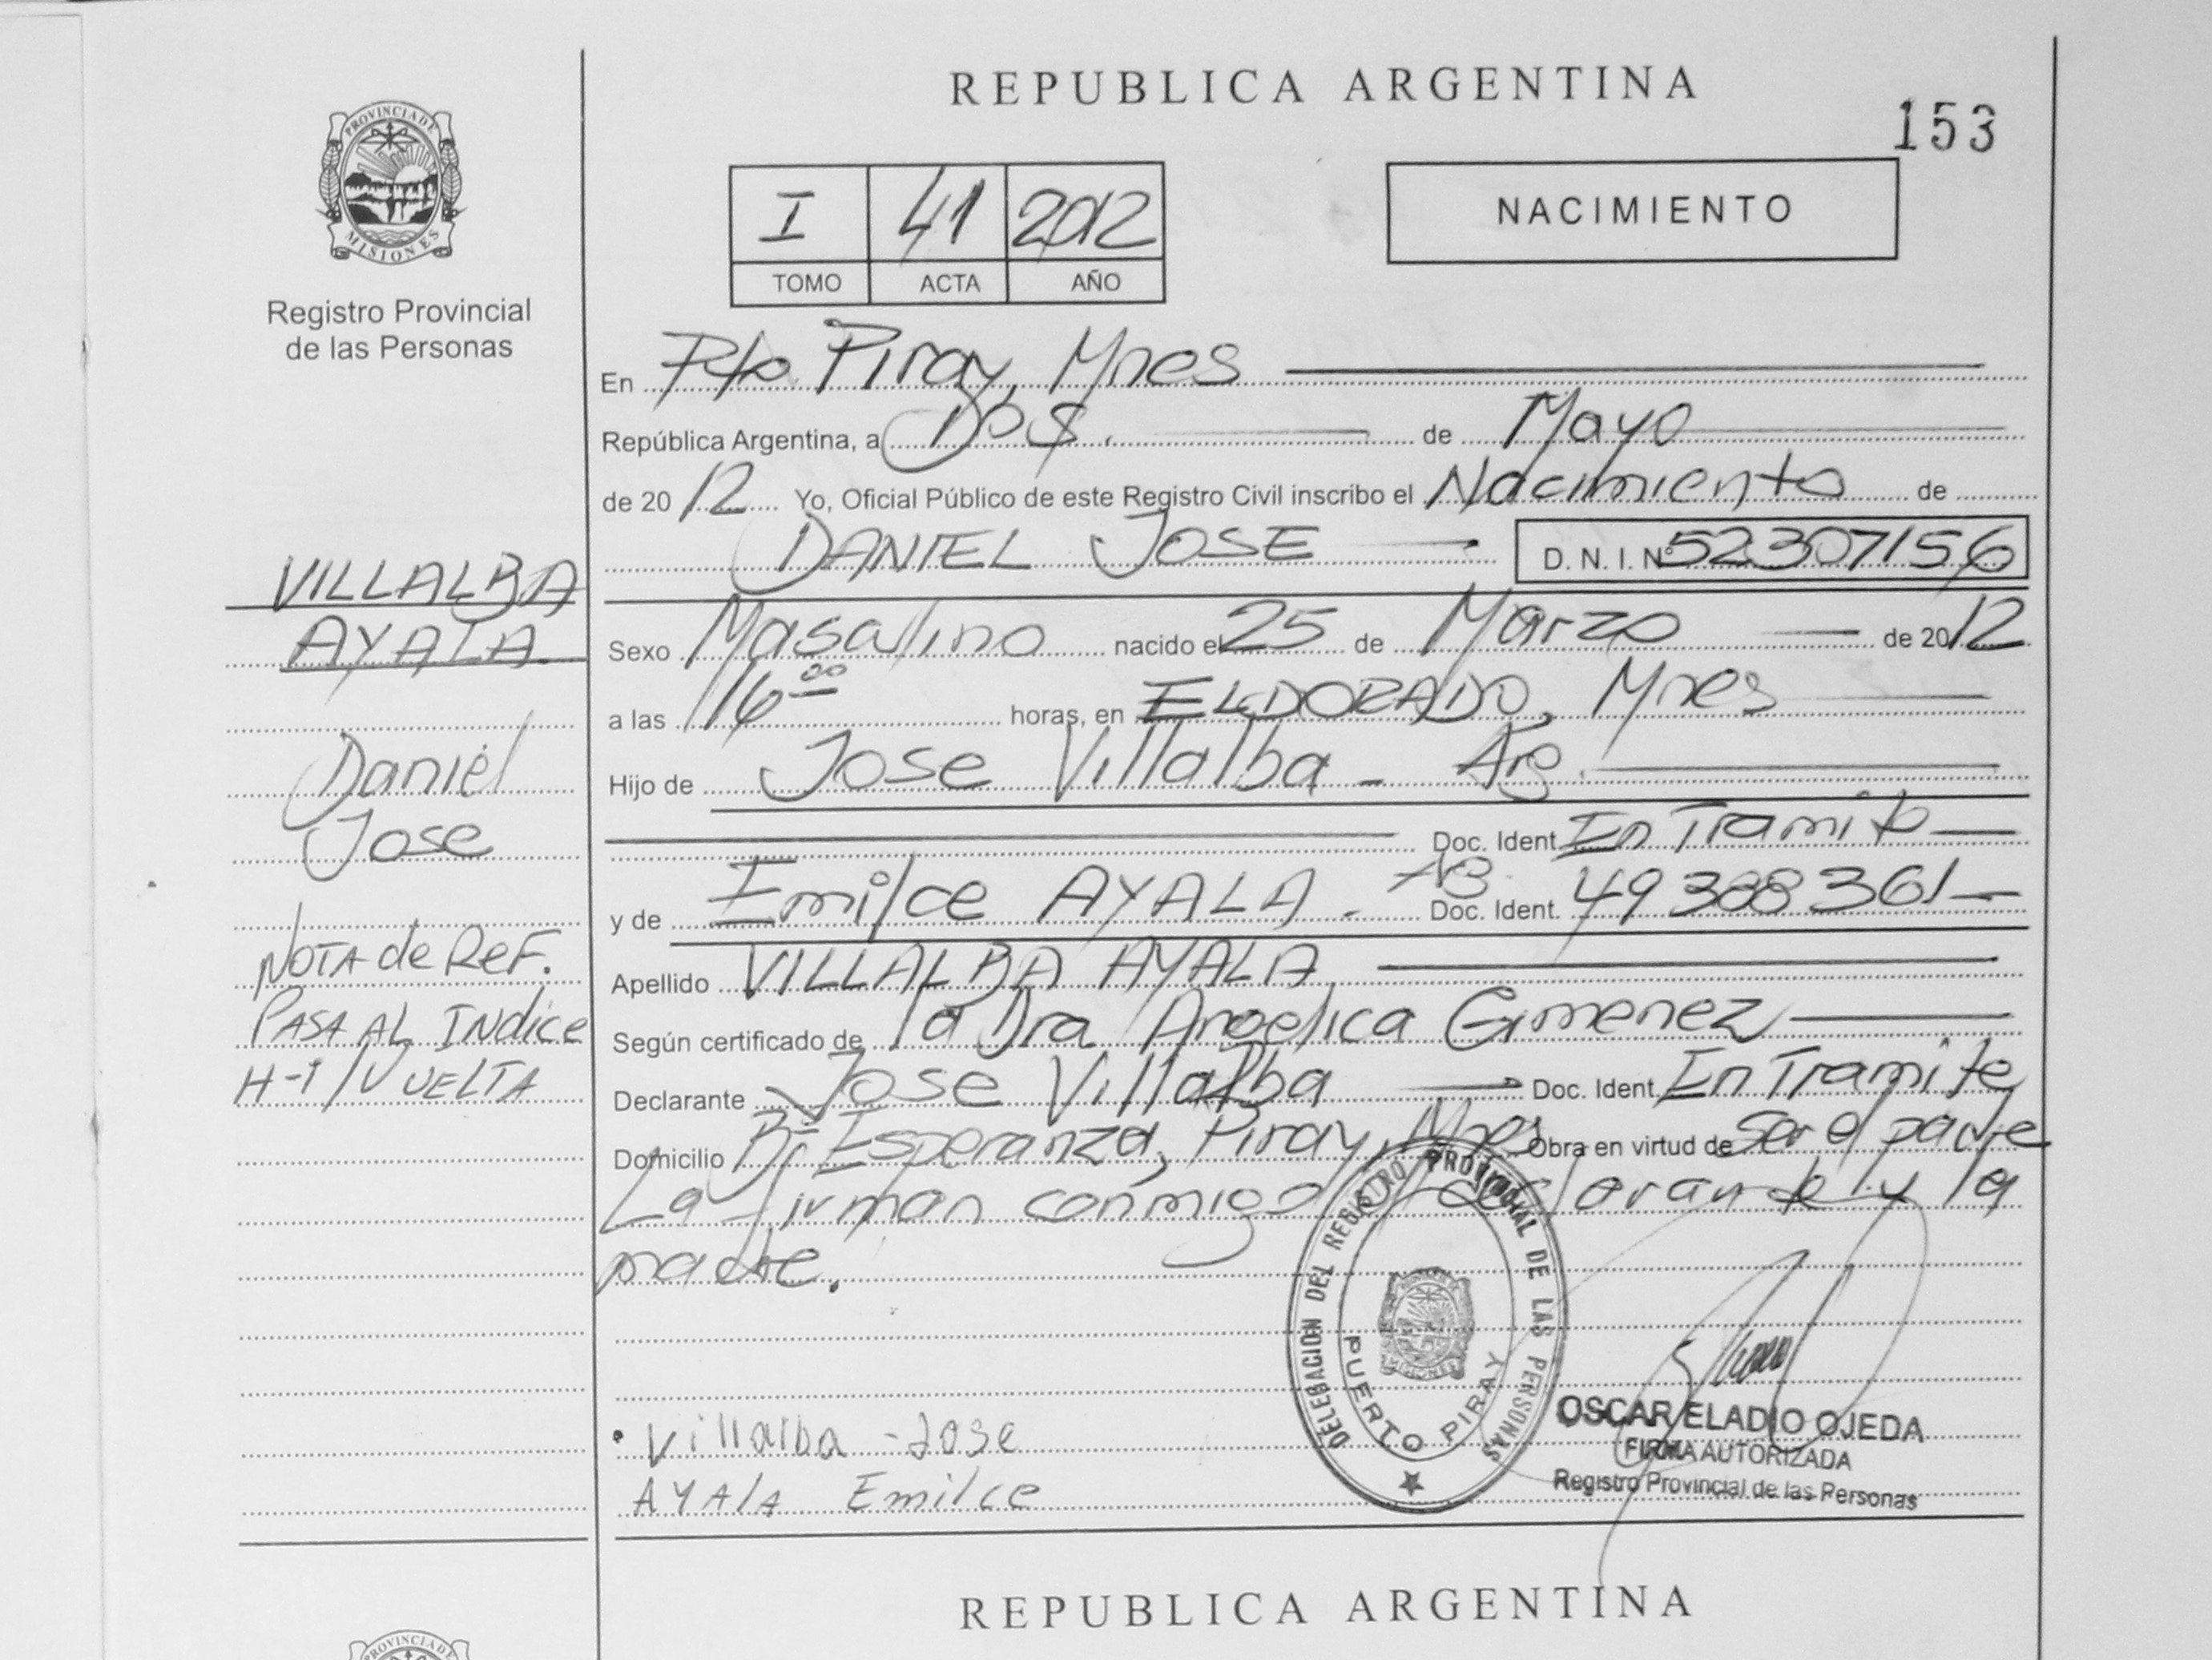 REPUBLICA ARGENTINA
153
PROVINCIA DE
MISIONES
Registro Provincial
de las Personas
I 41 2012
TOMO ACTA AÑO
NACIMIENTO
En Pto. Piray, Mnes
República Argentina, a Dos. de Mayo
de 2012 Yo, Oficial Público de este Registro Civil inscribo el Nacimiento de
DANIEL JOSE D. N. I. Nº 52307156
VILLALBA
AYALA
Daniel
Jose
NOTA de ReF.
PASA AL INdice
H-1/VUELTA
Sexo Masculino nacido el 25 de Marzo de 2012
a las 16 00 horas, en ELDORADO, Mnes
Hijo de Jose Villalba - Arg.
Doc. Ident. En Tramite
y de Emilce AYALA. - Arg. Doc. Ident. 49388361
Apellido VILLALBA AYALA
Según certificado de la Dra Angelica Gimenez
Declarante Jose Villalba Doc. Ident. En Tramite
Domicilio Bº Esperanza, Piray, Mnes Obra en virtud de ser el padre
La firman conmigo declarante y la
madre.
DELEGACION DEL REGISTRO PROVINCIAL DE LAS PERSONAS
PUERTO PIRAY
MISIONES
OSCAR ELADIO OJEDA
FIRMA AUTORIZADA
Registro Provincial de las Personas
Villalba - Jose
AYAlA Emilce
REPUBLICA ARGENTINA
PROVINCIA DE